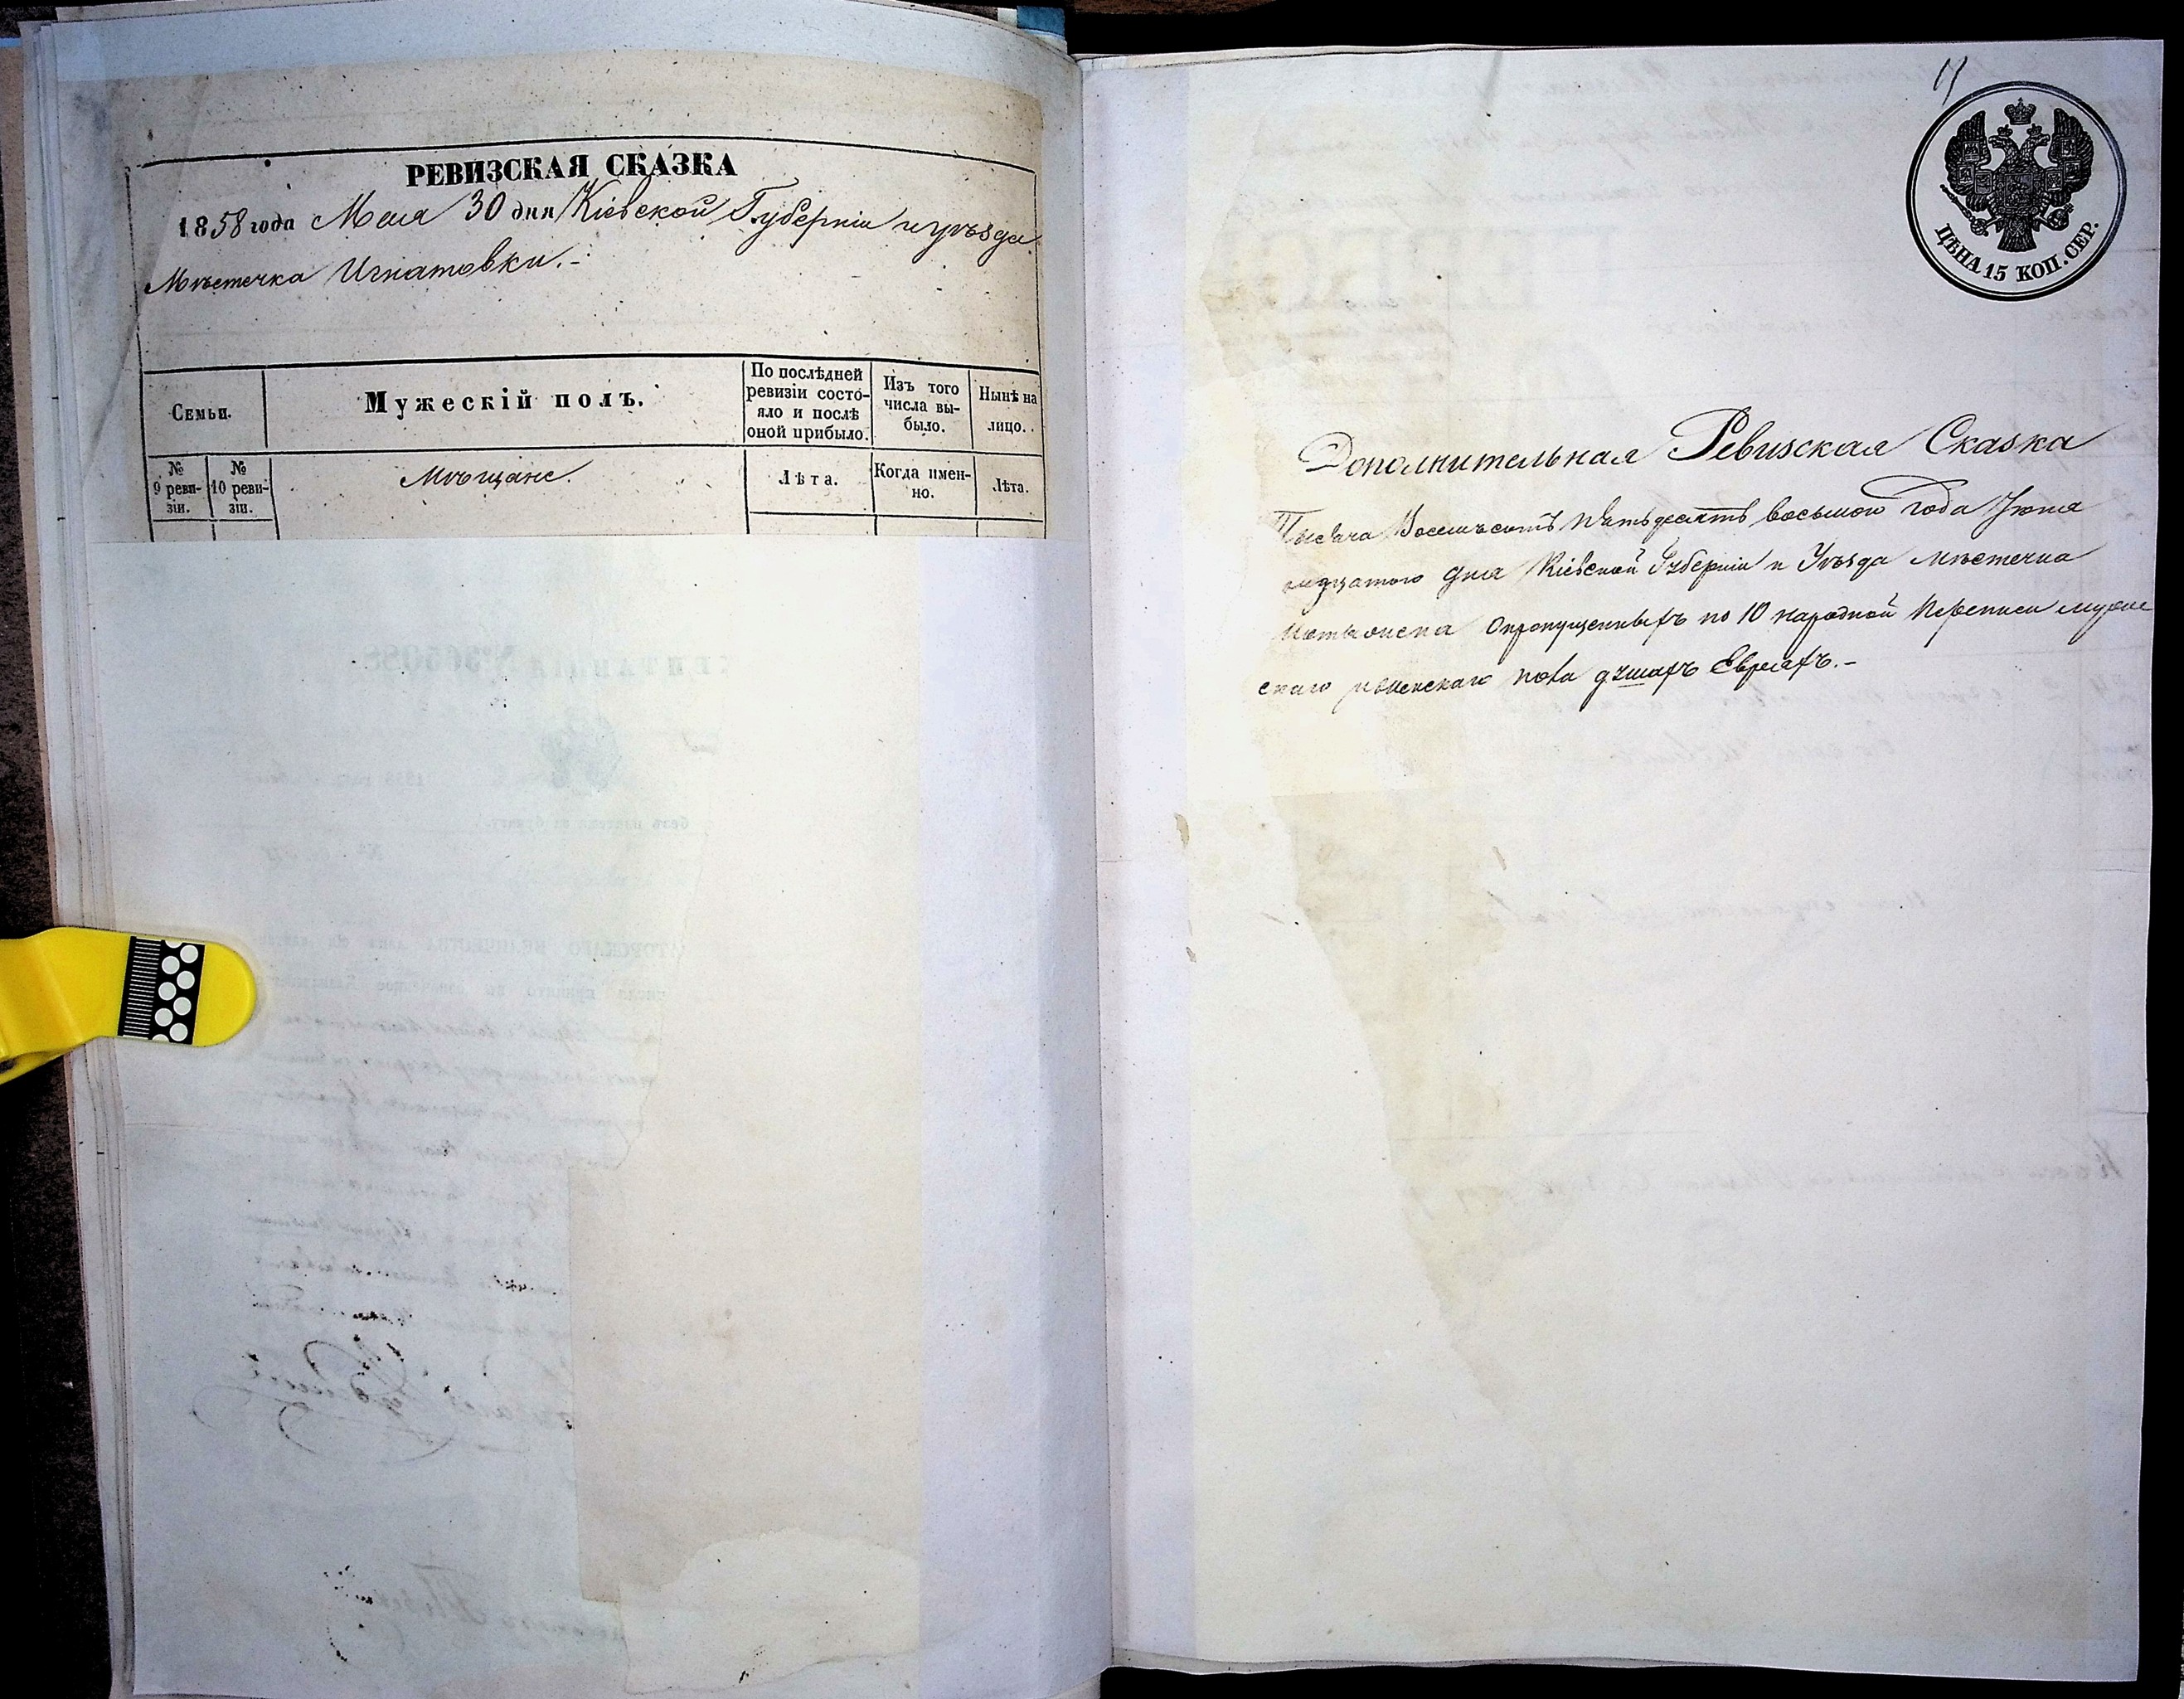 РЕВИЗСКАЯ СКАЗКА
1858 года Мая 30 дня Кіевской Губерніи и уѣзда
Мѣстечка Игнатовки.-
Семьи.
Мужескій полъ.
По послѣдней
ревизіи состо-
яло и послѣ
оной прибыло.
Изъ того
числа вы-
было.
Нынѣ на
лицо.
№
9 реви-
зіи.
№
10 реви-
зіи.
Мѣщане.
Лѣта.
Когда имен-
но.
Лѣта.
ЦѢНА 15 КОП. СЕР.
Дополнительная Ревизская Сказка
Тысяча Восемьсотъ пятьдесятъ восьмого года Іюня
дня Кіевской Губерніи и Уѣзда мѣстечка
опропущенныхъ по 10 народной Переписи муже
скаго и женскаго пола душахъ Евреяхъ.-